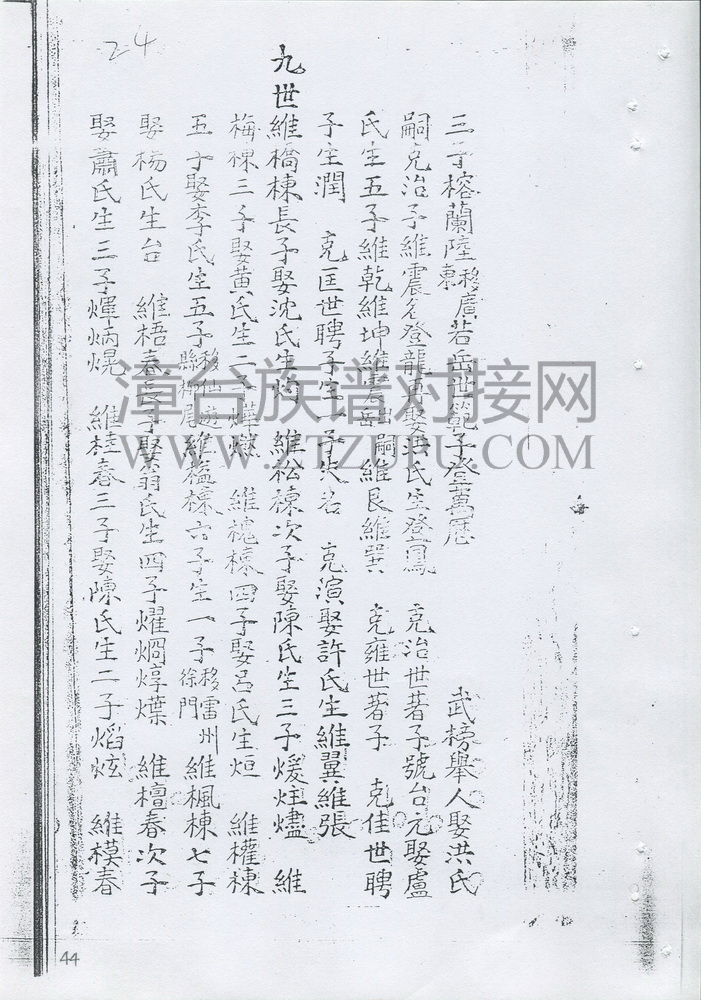 24
三子榕蘭陸移廣東若岳世範子登萬曆 武榜舉人娶洪氏
嗣克治子維震名登龍再娶洪氏生登鳳 克治世著子號台元娶盧
氏生五子維乾維坤維震出嗣維艮維巽 克雍世著子 克佳世聘
子生潤 克匡世聘子生一子失名 克演娶許氏生維翼維張
九世維橋棟長子娶沈氏生灼 維松棟次子娶陳氏生三子煖炷燼 維
梅棟三子娶黃氏生二子燁燉 維槐棟四子娶呂氏生烜 維權棟
五子娶李氏生五子移仙遊縣柳尾維楹棟六子生一子移雷州徐門維楓棟七子
娶楊氏生台 維梧春長子娶翁氏生四子燿烱焞燁 維檀春次子
娶蕭氏生三子煇炳熀 維桂春三子娶陳氏生二子熖炫 維模春
44
漳台族谱对接网
WWW.ZTZUPU.COM